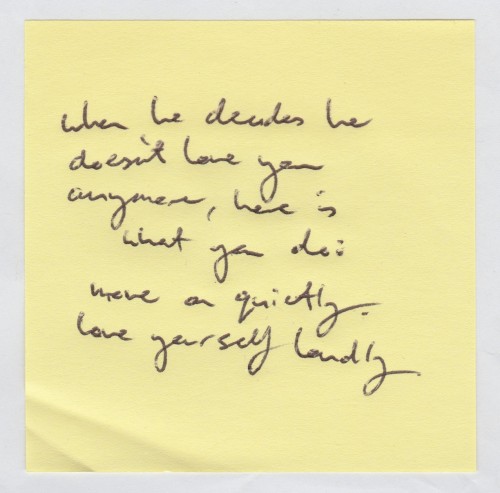 when he decides he
doesn't love you
anymore, here is
what you do:
move on quietly.
love yourself loudly.